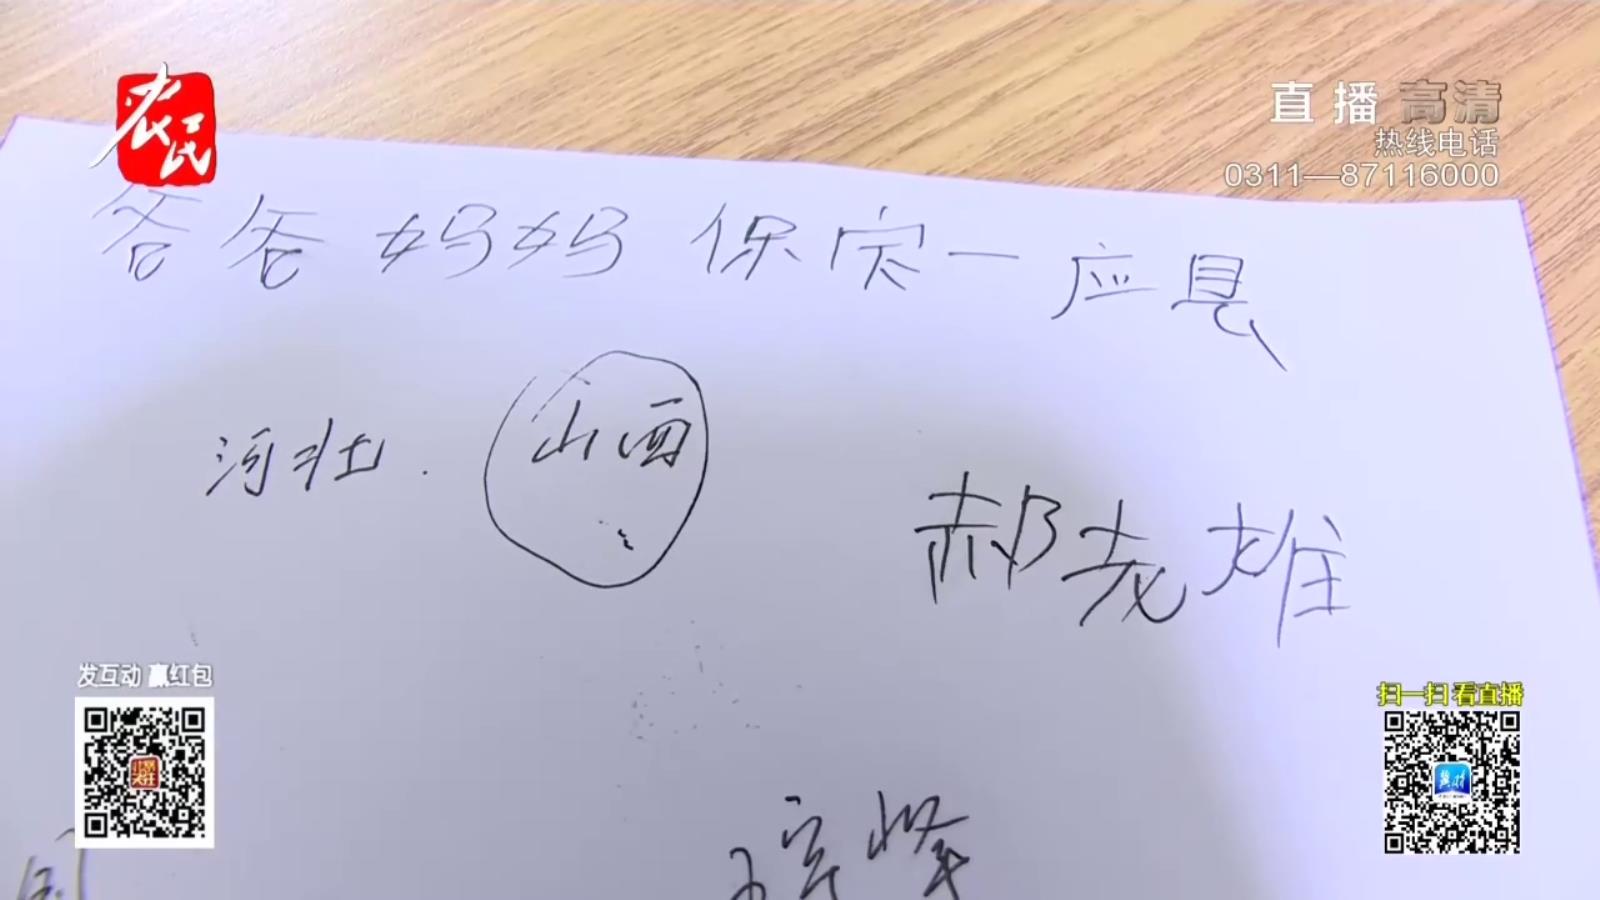 农民
直播 高清
热线电话
0311—87116000
爸爸妈妈 保定一应县
河北 . 山西
郝尧雄
发互动 赢红包
扫一扫 看直播
冀时